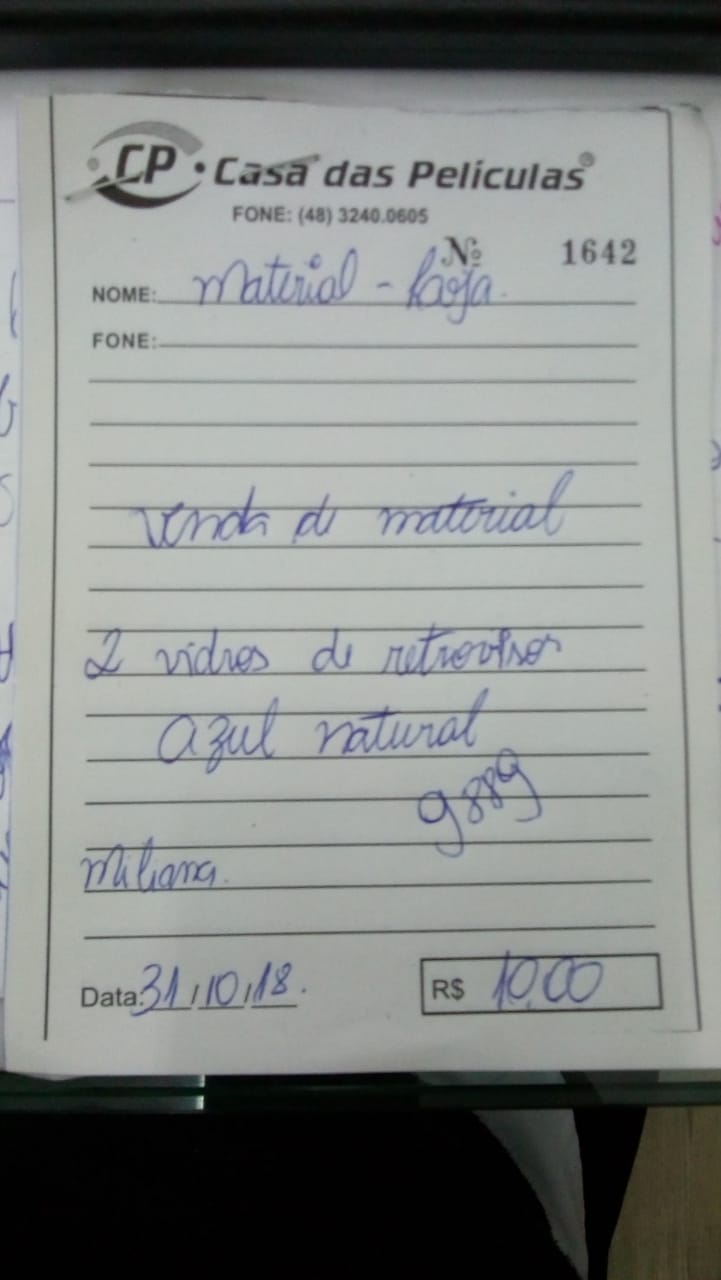 CP • Casa das Películas®
FONE: (48) 3240.0605
Nº 1642
NOME: Material - Loja.
FONE:
Venda de material
2 vidros de retrovisor
azul natural
9889
Miliana.
Data: 31/10/18.
R$ 10,00